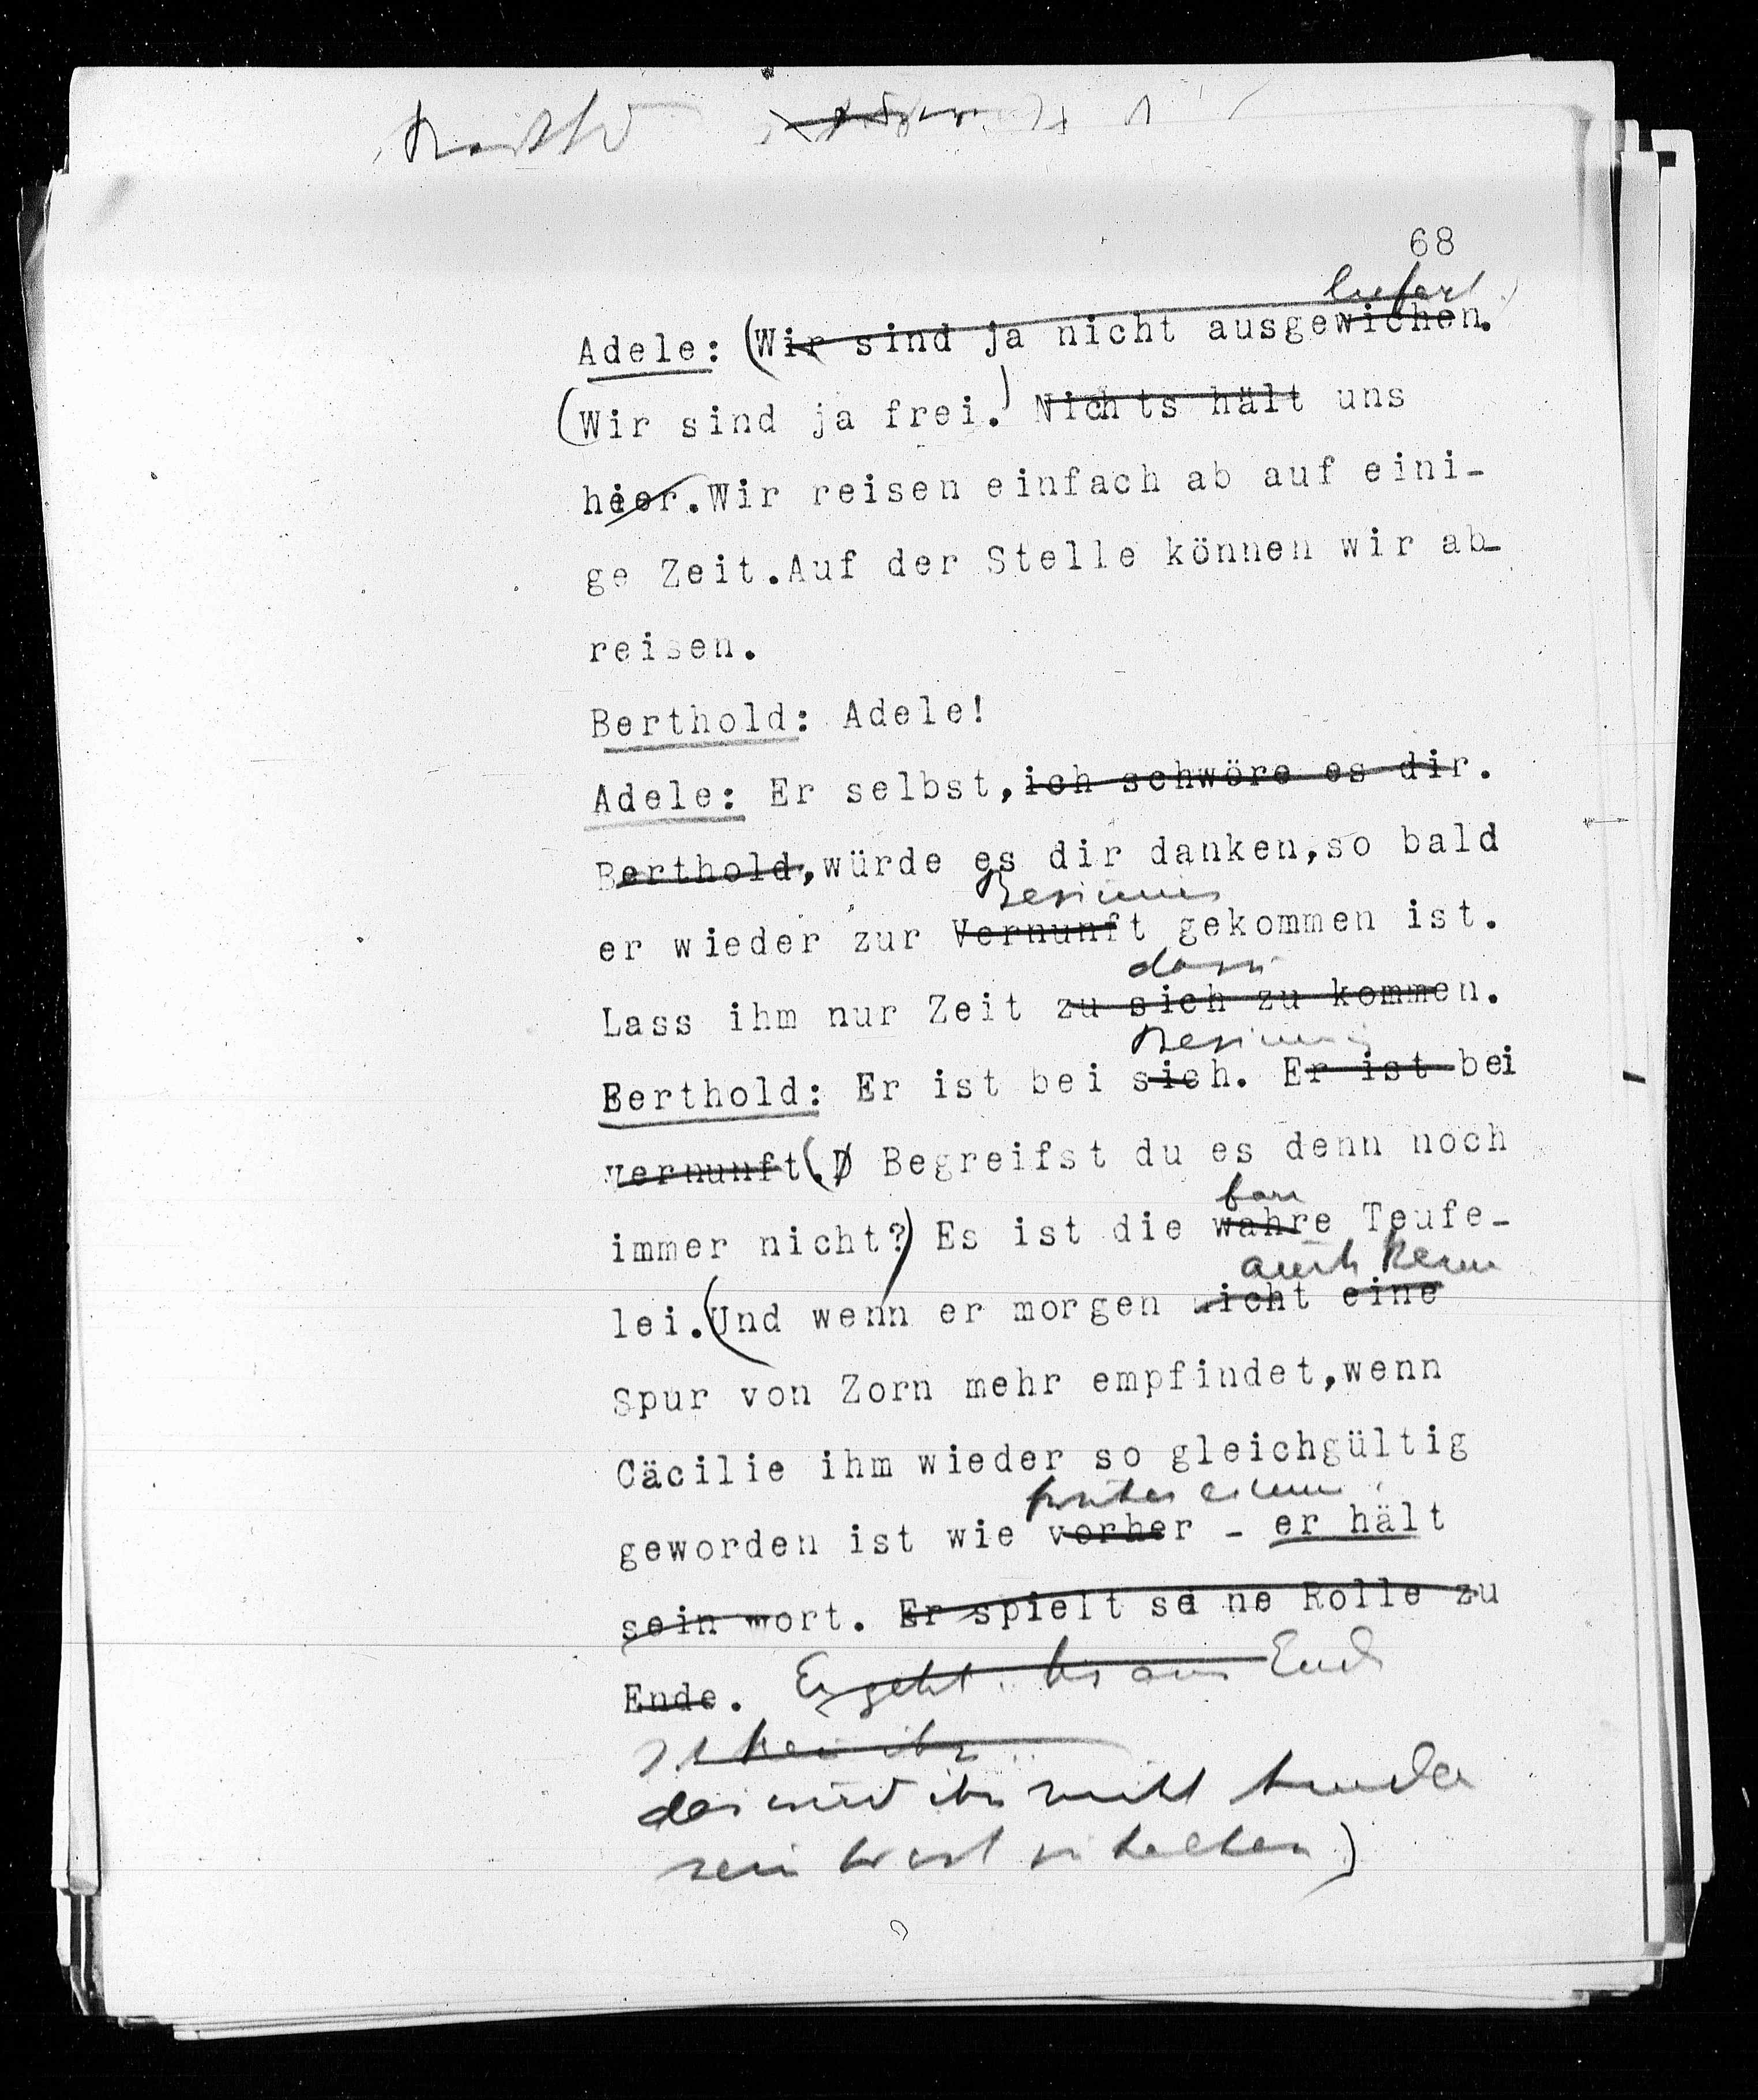 68
liefert
Adele: (Wir sind ja nicht ausgewichen.
(Wir sind ja frei.) Nichts hält uns
hier.Wir reisen einfach ab auf eini-
ge Zeit.Auf der Stelle können wir ab-
reisen.
Berthold: Adele!
Adele: Er selbst,ich schwöre es dir.
Berthold,würde es dir danken,so bald
Besinnung
er wieder zur Vernunft gekommen ist.
dazu
Lass ihm nur Zeit zu sich zu kommen.
Besinnung
Berthold: Er ist bei sich. Er ist bei
vernunft(.D Begreifst du es denn noch
immer nicht?) Es ist die wahre Teufe-
auch keine
lei.(Und wenn er morgen nicht eine
Spur von Zorn mehr empfindet,wenn
Cäcilie ihm wieder so gleichgültig
geworden ist wie vorher - er hält
sein wort. Er spielt seine Rolle zu
Ende. Er geht bis ans Ende
das wird ihn nicht hindern
sein Wort zu halten)